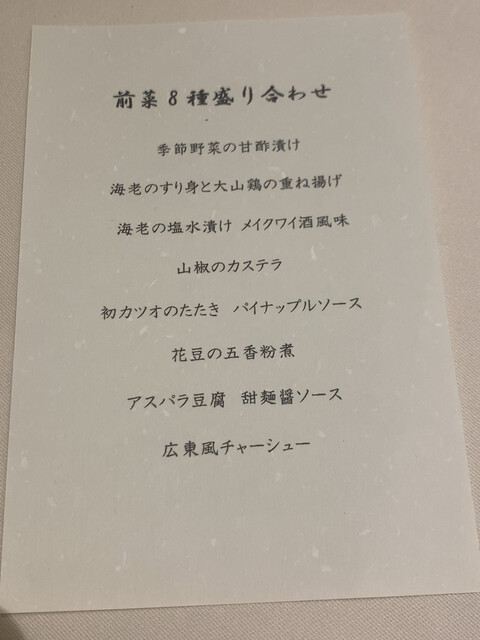 前菜8種盛り合わせ
季節野菜の甘酢漬け
海老のすり身と大山鶏の重ね揚げ
海老の塩水漬け メイクワイ酒風味
山椒のカステラ
初カツオのたたき パイナップルソース
花豆の五香粉煮
アスパラ豆腐 甜麺醤ソース
広東風チャーシュー